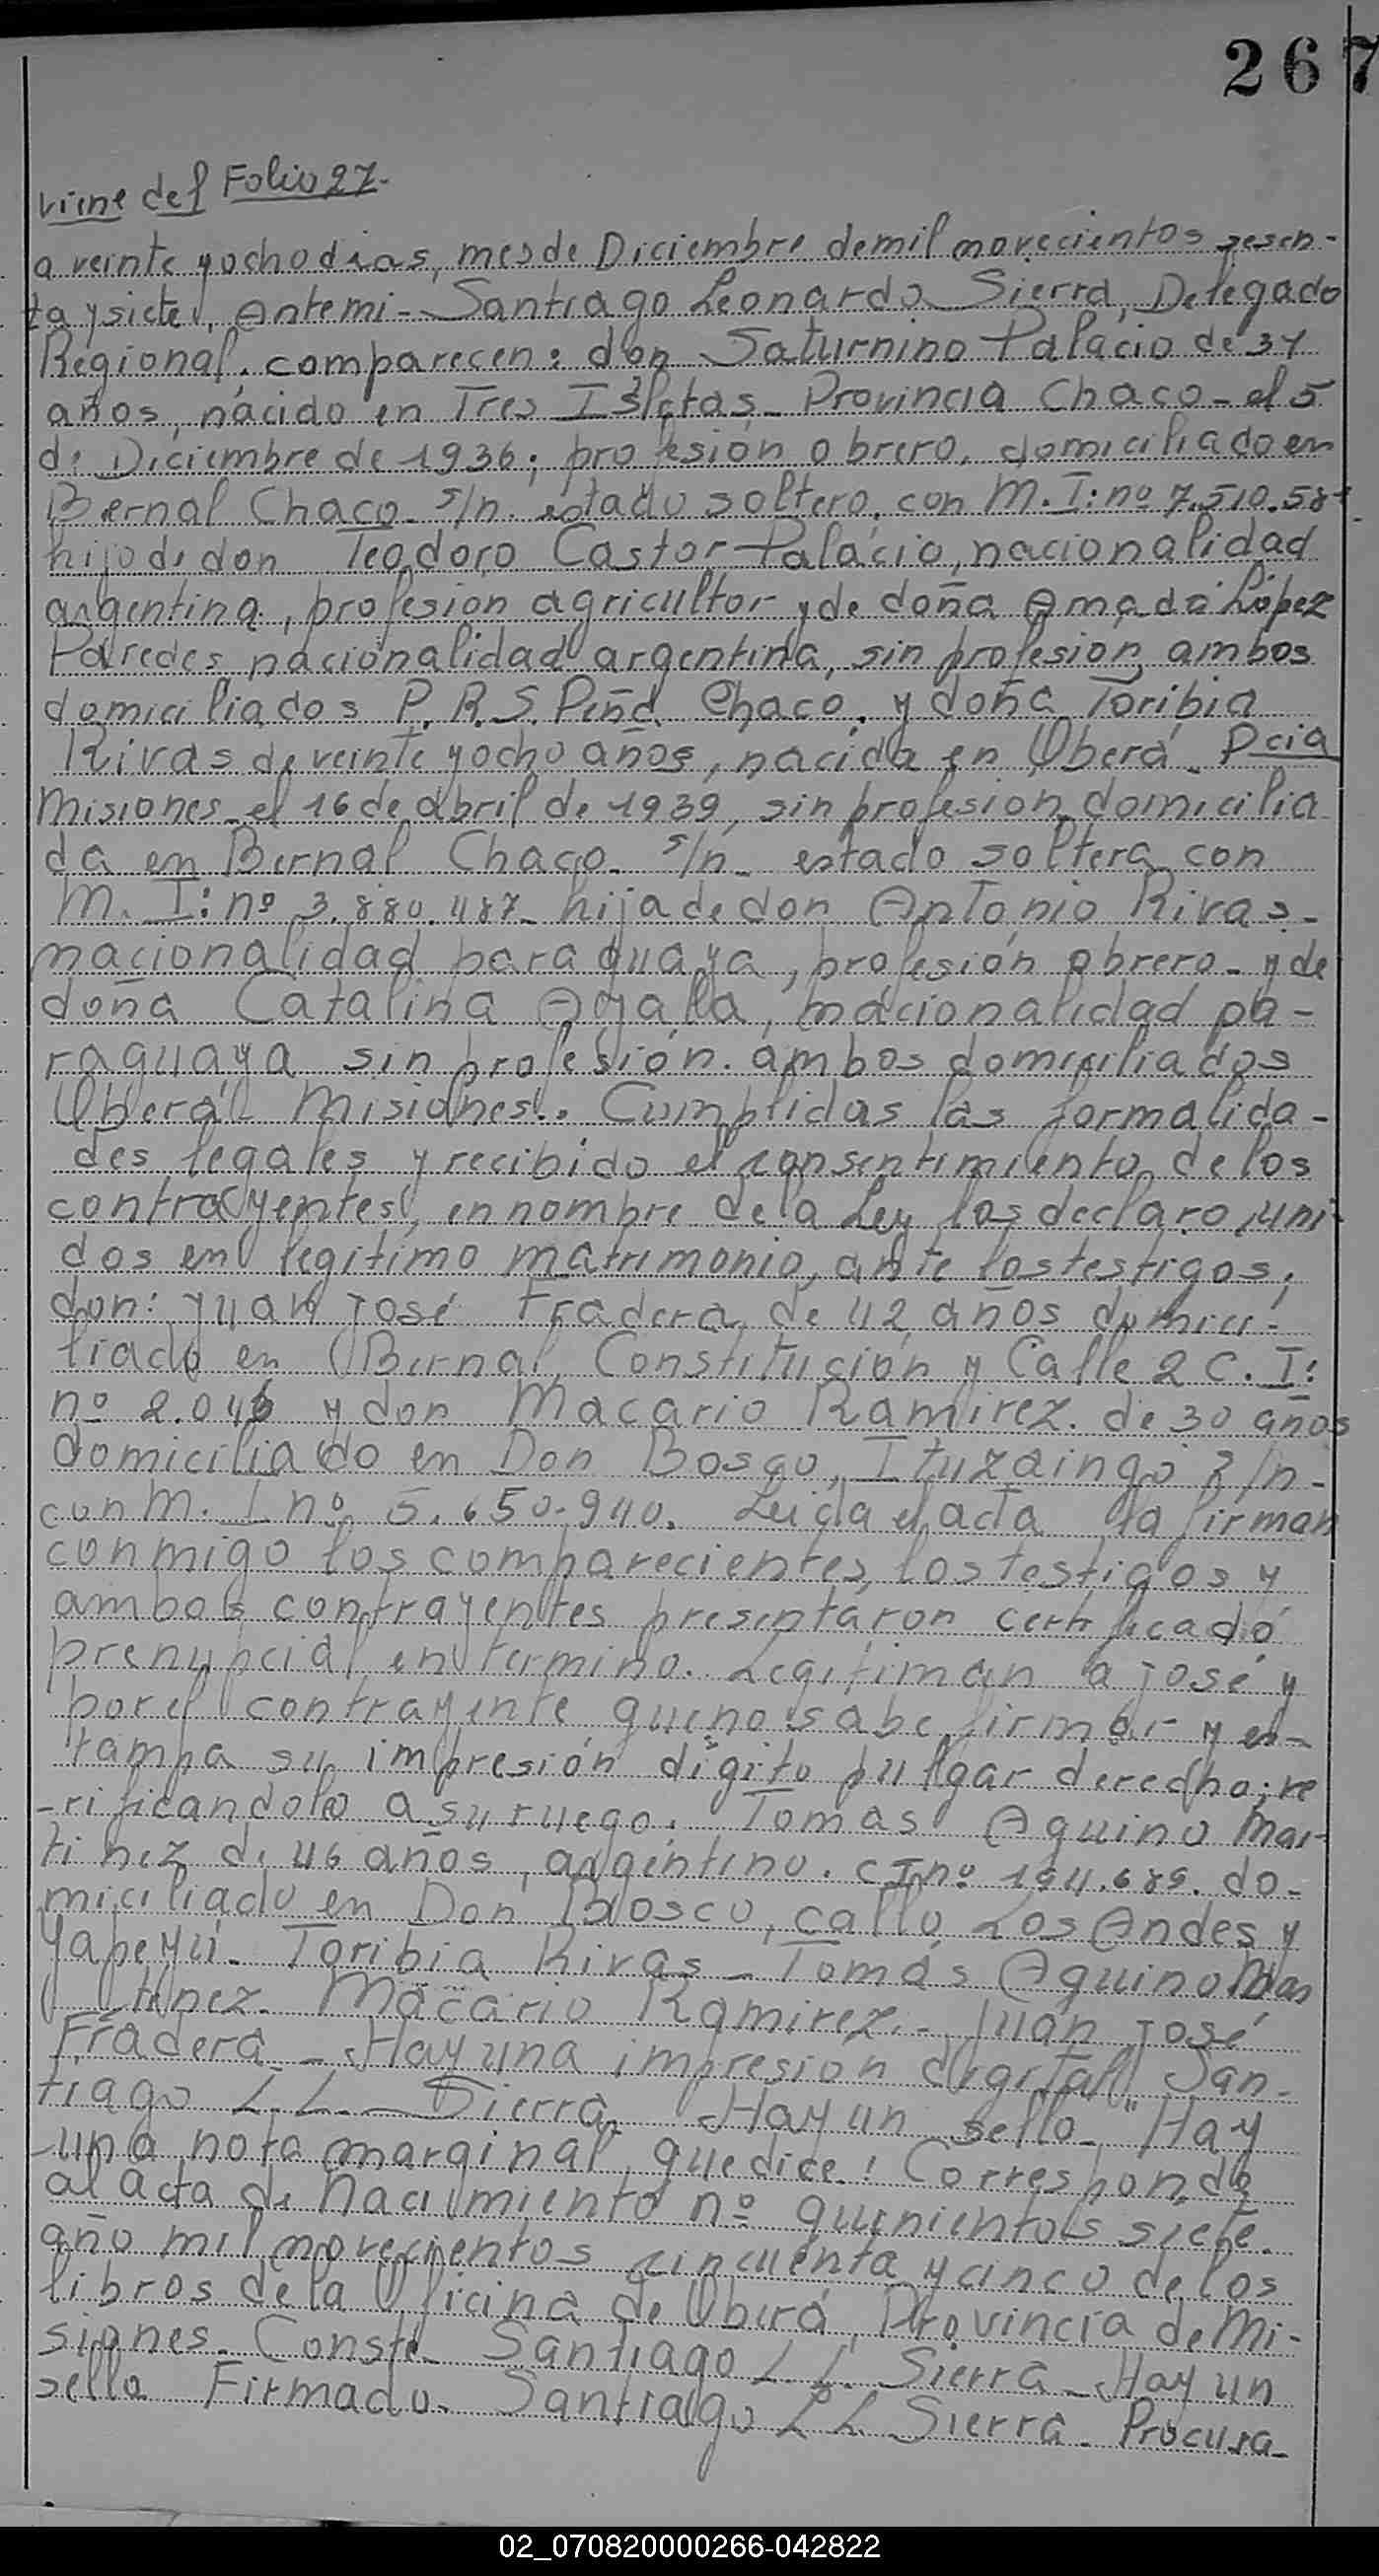 267
viene del Folio 27.
a veinte y ocho dias, mes de Diciembre de mil novecientos sesen-
ta y siete, Ante mi - Santiago Leonardo Sierra, Delegado
Regional, comparecen: don Saturnino Palacio de 31
años, nacido en Tres Isletas - Provincia Chaco - el 5
de Diciembre de 1936; profesión obrero, domiciliado en
Bernal Chaco s/n. estado soltero, con M. I: nº 7.510.58
hijo de don Teodoro Castor Palacio, nacionalidad
argentina, profesion agricultor y de doña Amada López
Paredes nacionalidad argentina, sin profesion, ambos
domiciliados P. R. S. Peña Chaco, y doña Toribia
Rivas de veinte y ocho años, nacida en Oberá - Pcia
Misiones el 16 de abril de 1939, sin profesion, domicilia
da en Bernal Chaco - s/n - estado soltera con
M. I: nº 3.880.487 - hija de don Antonio Rivas -
nacionalidad paraguaya, profesión obrero - y de
doña Catalina Ayala, nacionalidad pa-
raguaya sin profesión. ambos domiciliados
Oberá - Misiones. Cumplidas las formalida-
des legales y recibido el consentimiento de los
contrayentes, en nombre de la Ley los declaro uni-
dos en legitimo matrimonio, ante los testigos;
don: Juan José Fradera, de 42 años domici-
liado en Bernal, Constitución y Calle 2 C. I:
nº 2.046 y don Macario Ramirez. de 30 años
domiciliado en Don Bosco, Ituzaingo s/n -
con M. I nº 5.650.940. Leida el acta la firman
conmigo los comparecientes, los testigos y
ambos contrayentes presentaron certificado
prenupcial en termino. Legitiman a José y
por el contrayente que no sabe firmar y es-
tampa su impresión digito pulgar derecho; ve
-rificandolo a su ruego. Tomas Aquino Mar-
tinez de 46 años, argentino. C I nº 194.689. do-
miciliado en Don Bosco, calle Los Andes y
Yapeyú - Toribia Rivas - Tomás Aquino Mar
tinez. Macario Ramirez. - Juan José
Fradera - Hay una impresión digital" San-
tiago L. L. Sierra Hay un sello - "Hay
una nota marginal, que dice: Corresponde
al acta de nacimiento nº quinientos siete.
año mil novecientos cincuenta y cinco de los
libros de la Oficina de Oberá, Provincia de Mi-
siones. Conste - Santiago L. L. Sierra - Hay un
sello Firmado. Santiago L L. Sierra. Procura-
02_070820000266-042822